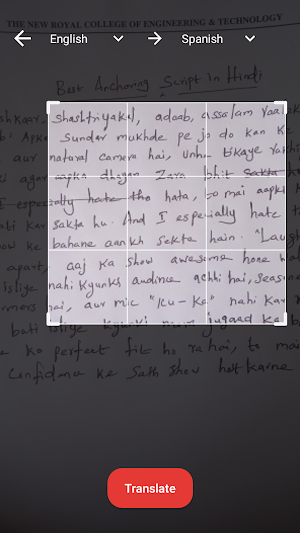 THE NEW ROYAL COLLEGE OF ENGINEERING & TECHNOLOGY
English
Spanish
Best Anchoring Script in Hindi
shkaar, shashtriyakal, adaab, assalam vaal
Apke Sundar mukhde pe jo do kan ke
aur natural camera hai, unhe tikaye rakhi
agar aapka dhyan Zara bhi sakta
I especially hate the hata, to mai aapki
sakta hu. And I especially hate t
ke bahane aankh sekta hain. "Laug
apart, aaj ka show awesome hone b
isliye nahi kyunki audience achhi hai, seas
rmers hai, aur mic "Ku-Ke" nahi kar
bati isliye kyunki mera jugaad ka
e ko perfect fit ho raha hai, to ma
Confidence ke Sath show host karne
Translate